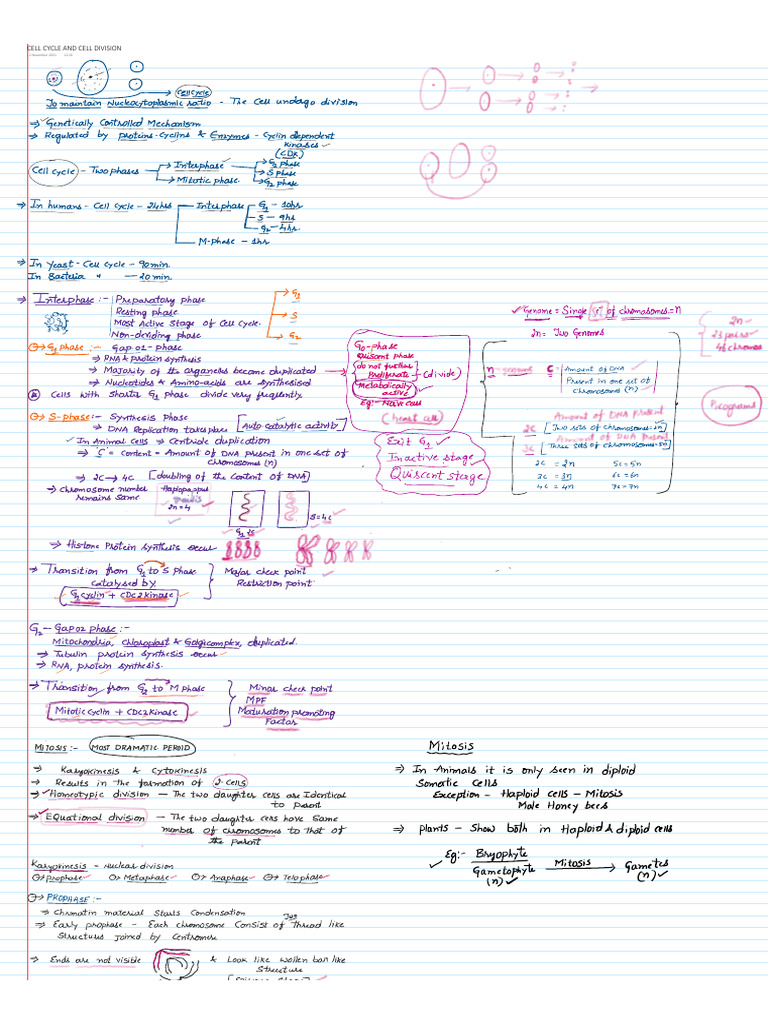 CELL CYCLE AND CELL DIVISION
Cell cycle
To maintain Nucleocytoplasmic ratio - The Cell undago division
⇒ Genetically Controlled Mechanism
⇒ Regulated by proteins-cyclins & Enzymes - Cyclin dependent
kinases
(CDK)
Cell cycle - Two phases
Interphase
G1 phase
S phase
G2 phase
Mitotic phase
⇒ In humans - Cell cycle - 24hrs
Interphase
G1 - 10hrs
S - 9hs
G2 - 4hs
M-phase - 1hs
⇒ In yeast - Cell cycle - 90 min
In Bacteria " - 20 min
⇒ Interphase :-
Preparatory phase
Resting phase
Most Active Stage of Cell cycle.
Non-deviding phase
G1
S
G2
G1 phase :- Gap 01 - Phase
⇒ RNA & protein synthesis
⇒ Majority of the organeles become duplicated
⇒ Nucleotides & Amino-acids are synthesised
Cells with shorter G1 phase divide very frequently.
G0-phase
Quiscent phase
do not further
Proliferate (divide)
Metabolically
active
Eg:- Nerve cell
(heart cell)
Exit G1
Inactive stage
Quiscent stage
Genome = Single set of chromosomes = n
2n = Two Genomes
n - genome
C - Amount of DNA
Present in one set of
chromosomes (n)
Amount of DNA present
2C [Two sets of chromosomes-2n]
Amount of DNA present
3C [Three sets of chromosomes-3n]
2C = 2n 5C = 5n
3C = 3n 6C = 6n
4C = 4n 7C = 7n
2n
23 pairs
46 chromos
Picograms
S-phase :- Synthesis Phase
⇒ DNA Replication takes place [Auto catalytic activity]
In Animal Cells ⇒ Centriole duplication
⇒ 'C' = content = Amount of DNA present in one set of
chromosomes (n)
⇒ 2C → 4C [doubling of the content of DNA]
⇒ Chromosome number
remains same
2n = 4
G1
S = 4C
⇒ Histone Protein synthesis occur
⇒ Transition from G1 to S phase
catalysed by
G1 cyclin + CDC2 kinase
Major check point
Restriction point
G2 - Gap 02 phase :-
Mitochondria, chloroplast & Golgicomplex, duplicated.
⇒ Tubulin protein synthesis occur
⇒ RNA, protein synthesis.
⇒ Transition from G2 to M phase
Mitotic cyclin + CDC2 kinase
Minor check point
MPF
Maturation promoting
Factor
MITOSIS :- MOST DRAMATIC PEROID
⇒ Karyokinesis & Cytokinesis
⇒ Results in the formation of 2-Cells
⇒ Homeotypic division - The two daughter cells are Identical
to parent
⇒ Equational division - The two daughter cells have Same
number of chromosomes to that of
the parent
Karyokinesis - Nuclear division
Prophase Metaphase Anaphase Telophase
PROPHASE :-
⇒ Chromatin material Starts Condensation
⇒ Early prophase - Each chromosome Consist of Two Thread like
Structures joined by Centromere
⇒ Ends are not visible & Look like Wollen ball like
Structure
Mitosis
⇒ In Animals it is only seen in diploid
Somatic Cells
Exception - Haploid cells - Mitosis
Male Honey bees
⇒ plants - Show both in Haploid & diploid cells
Eg:- Bryophyte
Gametophyte
(n)
Mitosis
Gametes
(n)